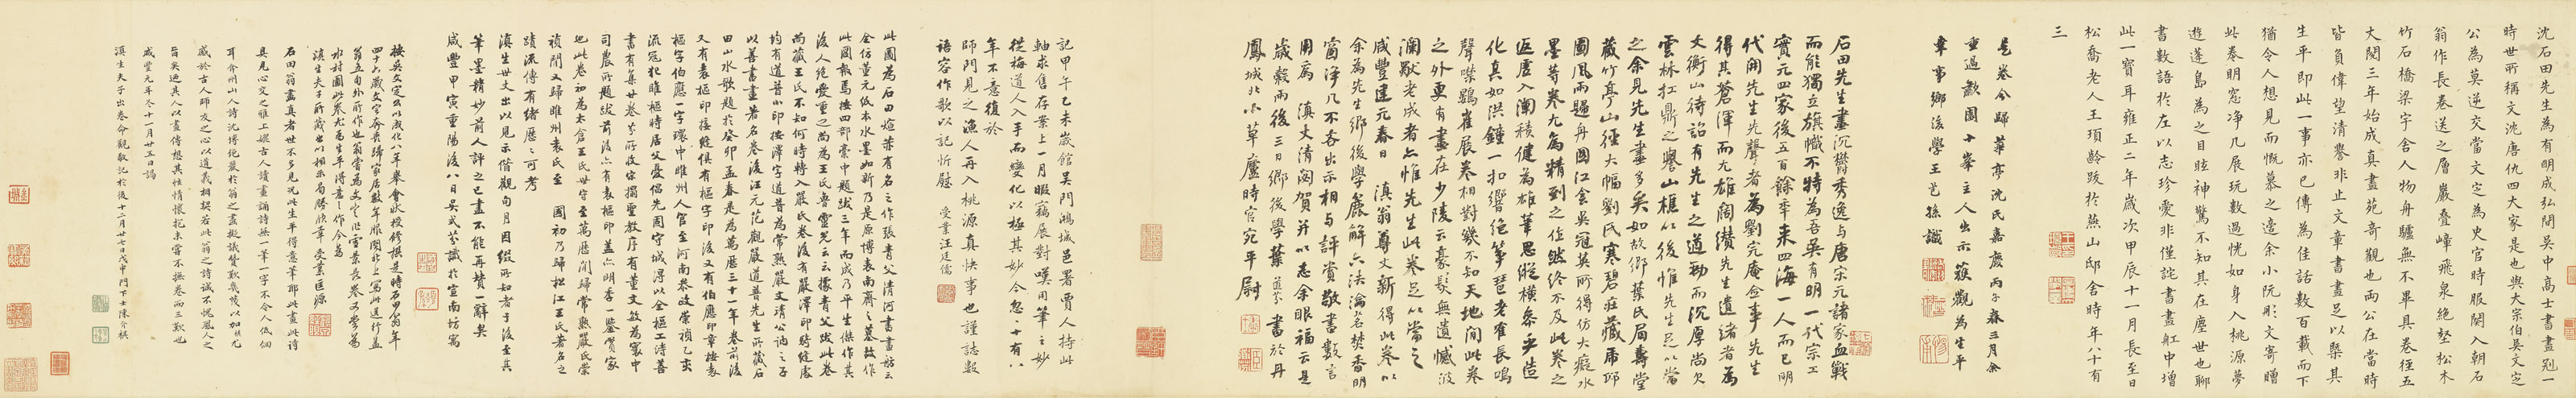 沈石田先生為有明成弘間吳中高士書畫冠一
時世所稱文沈唐仇四大家是也與大宗伯吳文定
公為莫逆交當文定為史官時服闋入朝石
翁作長卷送之層巖叠嶂飛泉絕壑松木
竹石橋梁宇舍人物舟驢無不畢具卷徑五
丈閱三年始成真畫苑奇觀也兩公在當時
皆負偉望清譽非止文章書畫足以槩其
生平即此一事亦已傳為佳話數百載而下
猶令人想見而慨慕之適余小阮彤文寄贈
此卷明窓净几展玩數過恍如身入桃源夢
遊蓬島為之目眩神驚不知其在塵世也聊
書數語於左以志珍愛非僅詫書畫舡中增
此一寶耳雍正二年歲次甲辰十一月長至日
松喬老人王頊齡跋於燕山邸舍時年八十有
三
是卷今歸華亭沈氏嘉慶丙子春三月余
重過歙圃十峯主人出示獲觀為生平
幸事鄉後學王芑孫識
石田先生畫沉鬱秀逸与唐宋元諸家血戰
而能獨立旗幟不特為吾吳有明一代宗工
實元四家後五百餘年来四海一人而已明
代開先生先聲者為劉完庵僉事先生
得其蒼渾而尢雄闊纘先生遺緒者為
文衡山待詔有先生之遒勁而沉厚尚欠
雲林扛鼎之譽山樵以後惟先生足以當
之余見先生畫多矣如故鄉葉氏局壽堂
藏竹亭山徑大幅劉氏寒碧莊藏帚邜
圖風雨歸舟圖江氽吳冠英所得仿大癡水
墨等卷尢為精到之作然終不及此卷之
邱壑入闌積健為雄筆思縱橫參乎造
化真如洪鐘一扣響絕箏琶老隺長鳴
聲噤鷃雀展卷相對幾不知天地间此卷
之外更有畫在少陵云豪髮無遺憾波
瀾獨老成者亦惟先生此卷足以當之
咸豐建元春日 滇翁尊丈新得此卷以
余為先生鄉後學麤解六法瀹茗焚香明
窗浄几不吝出示相与評賞敬書數言
用為 滇丈清閟賀并以志余眼福云是
歲穀雨後三日鄉後學葉道芬書於丹
鳳城北小草廬時官宛平尉
記甲午乙未歲館吳門鴻城邑署賈人持此
軸求售存案上一月暇竊展對嘆用筆之妙
從梅道人入手而變化以極其妙今忽忽十有八
年不意復於
師門見之漁人再入桃源真快事也謹誌數
語容作歌以記忻慰 受業汪廷儒
此圖為石田煊菜有名之作張青父清河書畫舫云
全仿董元低本水墨如新乃是原博表南齋之墓故作
此圖報焉按四部稾中題跋三年而成乃平生傑作其
後人絕愛重之尚為王氏魯靈光云云據青父跋此卷
尚藏王氏不知何時轉入嚴氏卷後有嚴澤印騎縫處
均有道普小印按澤字道普為常熟嚴文靖公訥之子
以善書畫著名卷後汪元范觀嚴道普先生所藏石
田山水歌題於癸卯孟春是為萬歷三十一年卷前後
又有袁樞印接縫俱有樞字印後又有伯應印章按袁
樞字伯應一字環中睢州人官至河南叅政崇禎乙亥
流寇犯睢樞時居父憂倡先固守城得以全樞工詩善
書富有集廿卷于所收宋搨聖教序有董文敏為袁中
司農所題跋前後亦有袁樞印蓋亦明季一鑒賞家
也此卷初為太倉王氏世守至萬歷间歸常熟嚴氏崇
禎間又歸睢州袁氏至 國初乃歸松江王氏著名之
蹟流傳有緒歷歷可考
滇生世丈出以見示借觀旬月因綴所知者于後至其
筆墨精妙前人評之已盡不能再贊一辭矣
咸豐甲寅重陽後八日吳式芬識於宣南坊寓
按吳文定公以成化八年舉會狀授修撰是時石田翁年
四十六歲文定奔喪歸家居數年服闋北上寫此送行蓋
翁五旬外所作也翁嘗為文定作雪景長卷又嘗為
水村圖此卷尤為生平得意之作今為
滇生夫子所藏出以相示曷勝欣幸受業匡源
石田翁畫真者世不多見況此生平得意筆耶此畫此詩
具見心交之雅上媲古人讀畫誦詩無一筆一字不令人低佪
耳弇州山人詩沈博絕麗於翁之畫擬議贊歎幾于以加矣尢
感於古人師友之心以道義相契若此翁之詩誠不愧風人之
旨矣迺其人以畫傳想其性情懷抱未嘗不撫卷而三歎也
咸豐元年冬十一月廿五日謁
滇生夫子出卷命觀敬記於後十二月廿七日戊申門下士陳介祺